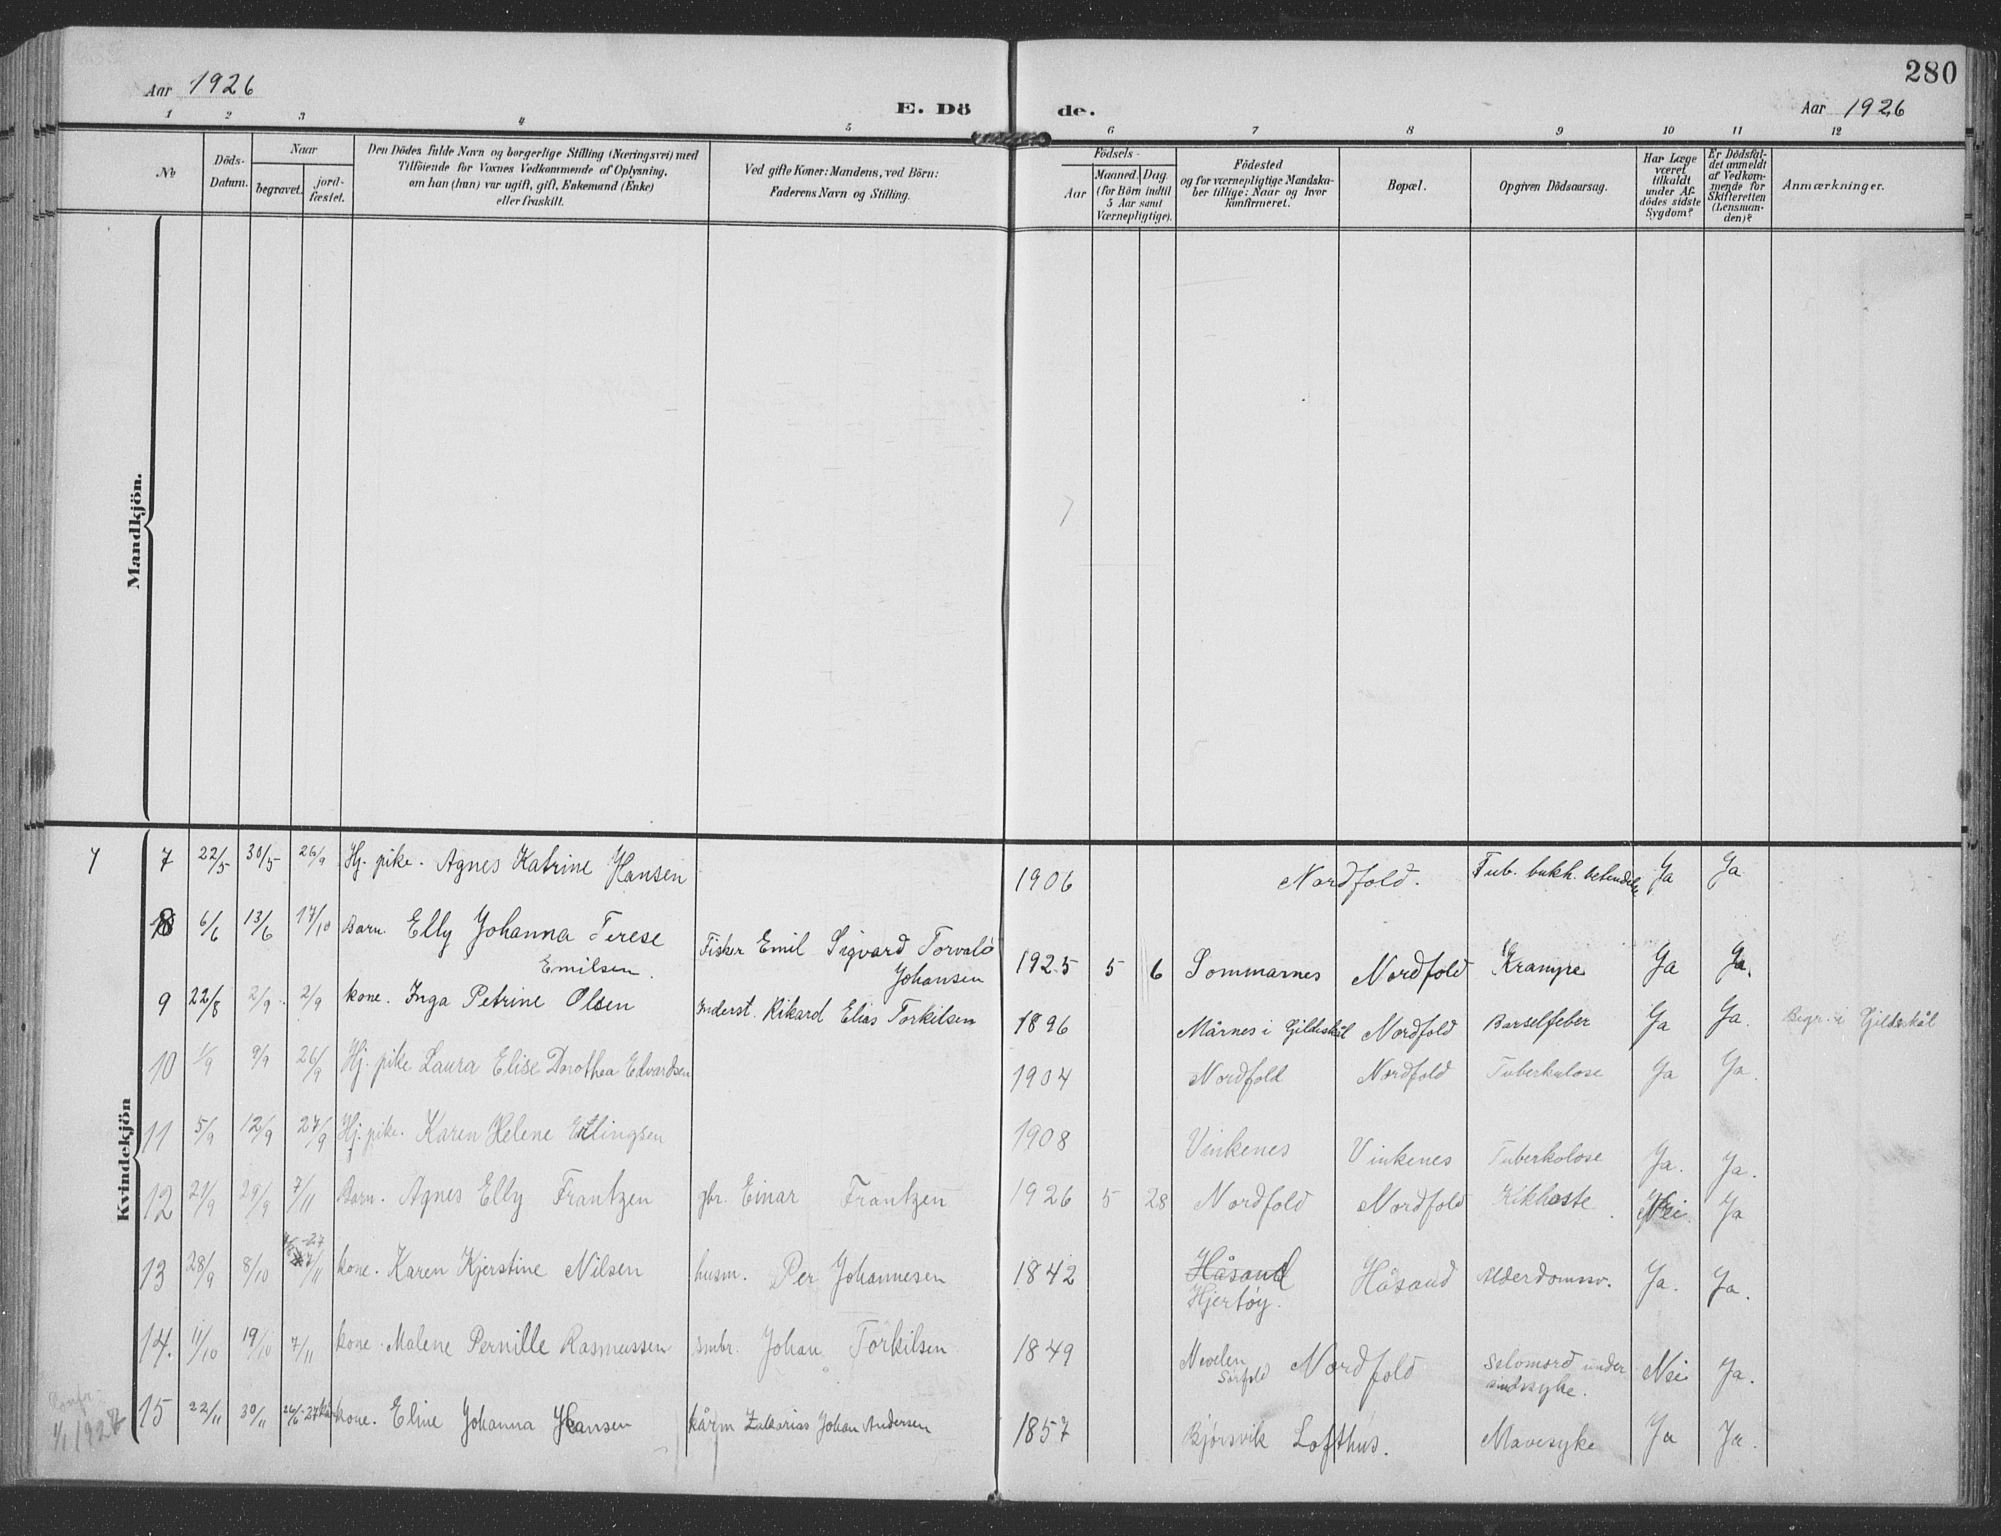 280
Aar 1926
E. Dö
de.
Aar 1926
1 2 3 4 5 6 7 8 9 10 11 12
No
Döds-
Datum.
Naar
begravet.
jord-
fæstet.
Den Dödes fulde Navn og borgerlige Stilling (Næringsvei) med
Tilföiende for Voxnes Vedkommende af Oplysning,
om han (hun) var ugift, gift, Enkemand (Enke)
eller fraskilt.
Ved gifte Koner: Mandens, ved Börn:
Faderens Navn og Stilling.
Födsels-
Aar
Maaned.
Dag
(for Börn indtil
5 Aar samt
Værnepligtige).
Födested
og for værnepligtige Mandska-
ber tillige: Naar og hvor
konfirmeret.
Bopæl.
Opgiven Dödsaarsag.
Har Læge
været
tilkaldt
under Af-
dödes sidste
Sygdom?
Er Dödsfal-
det anmeldt
af Vedkom-
mende for
Skifteretten
(Lensman-
den)?
Anmærkninger.
Mandkjön.
Kvindekjön
7 22/5 30/5 26/9 Hj. pike. Agnes Katrine Hansen 1906 Nordfold. Tub. bukh. betendelse Ja Ja
8 6/6 13/6 17/10 Barn. Elly Johanna Terese
Emilsen. Fisker Emil Sigvard Torvald
Johansen 1925 5 6 Sommarnes Nordfold Kramyre Ja Ja.
9 22/8 2/9 2/9 kone. Inga Petrine Olsen Inderst. Rikard Elias Torkilsen 1896 Mårnes i Gildeskål Nordfold Barselfeber Ja Ja. Begr. i Gjildeskål
10 1/9 9/9 26/9 Hj. pike Laura Elise Dorothea Edvardsen 1904 Nordfold Nordfold Tuberkulose Ja Ja.
11 5/9 12/9 27/9 Hj. pike. Karen Helene Erlingsen 1908 Vinkenes Vinkenes Tuberkolose Ja. Ja.
12 21/9 29/9 7/11 Barn. Agnes Elly Frantzen gbr. Einar Frantzen 1926 5 28 Nordfold Nordfold Kikhoste. Nei Ja
13 28/9 8/10 7/11 kone. Karen Kjerstine Nilsen husm. Per Johannesen 1842 Håsand
Hjertøy. Håsand Alderdomssv. Ja. Ja.
14. 11/10 19/10 7/11 kone. Malene Pernille Rasmussen smbr. Johan Torkilsen 1849 Nevelen
Sørfold Nordfold Selvmord under
sindssyke. Nei Ja.
15 22/11 30/11 kone. Eline Johanna Hansen kårm Zakarias Johan Andersen 1857 Bjørsvik Lofthus. Mavesyke Ja Ja.